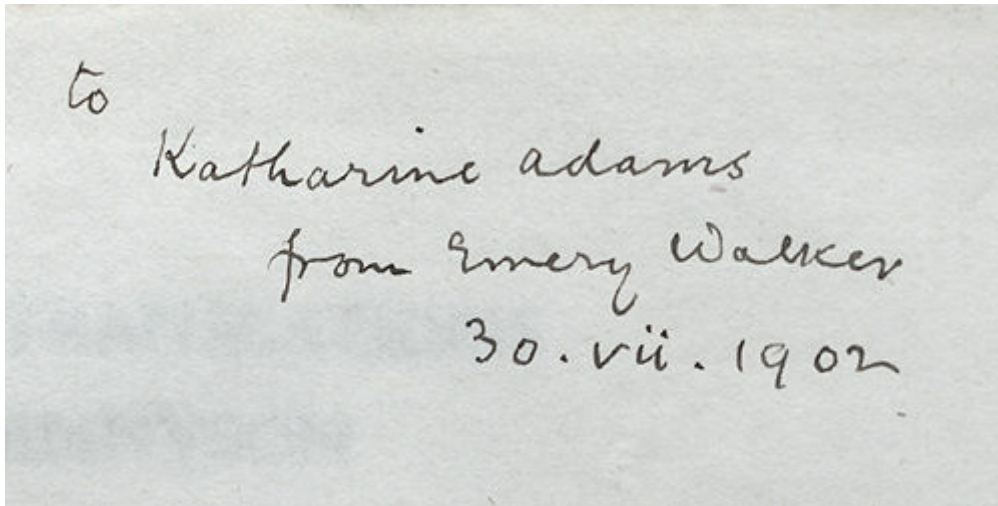 to
Katharine adams
from Emery Walker
30. vii. 1902